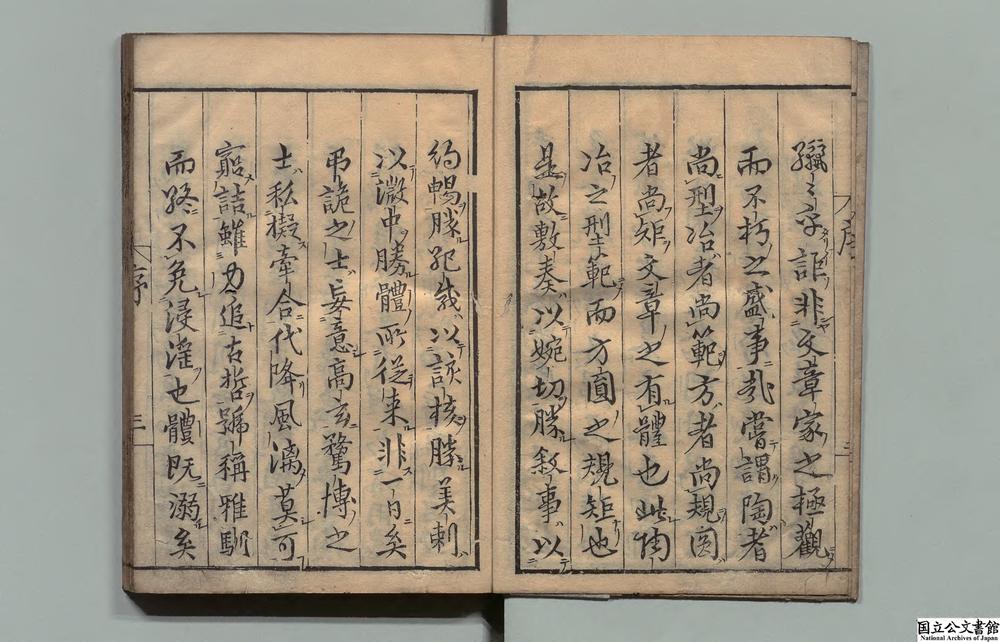 纚〻乎詎非文章家之極觀
而不朽之盛事哉嘗謂陶者
尚型冶者尚範方者尚規圓
者尚矩文章之有體也此陶
冶之型範而方圓之規矩也
是故敷奏以婉切勝敘事以
約暢勝紀載以該核勝美刺
以微中勝體所從來非一日矣
弔詭之士妄意高玄騖博之
士私擬牽合代降風漓莫可
窮詰雖力追古哲號稱雅馴
而終不免浸淫也體既溺矣
序
三
国立公文書館
National Archives of Japan